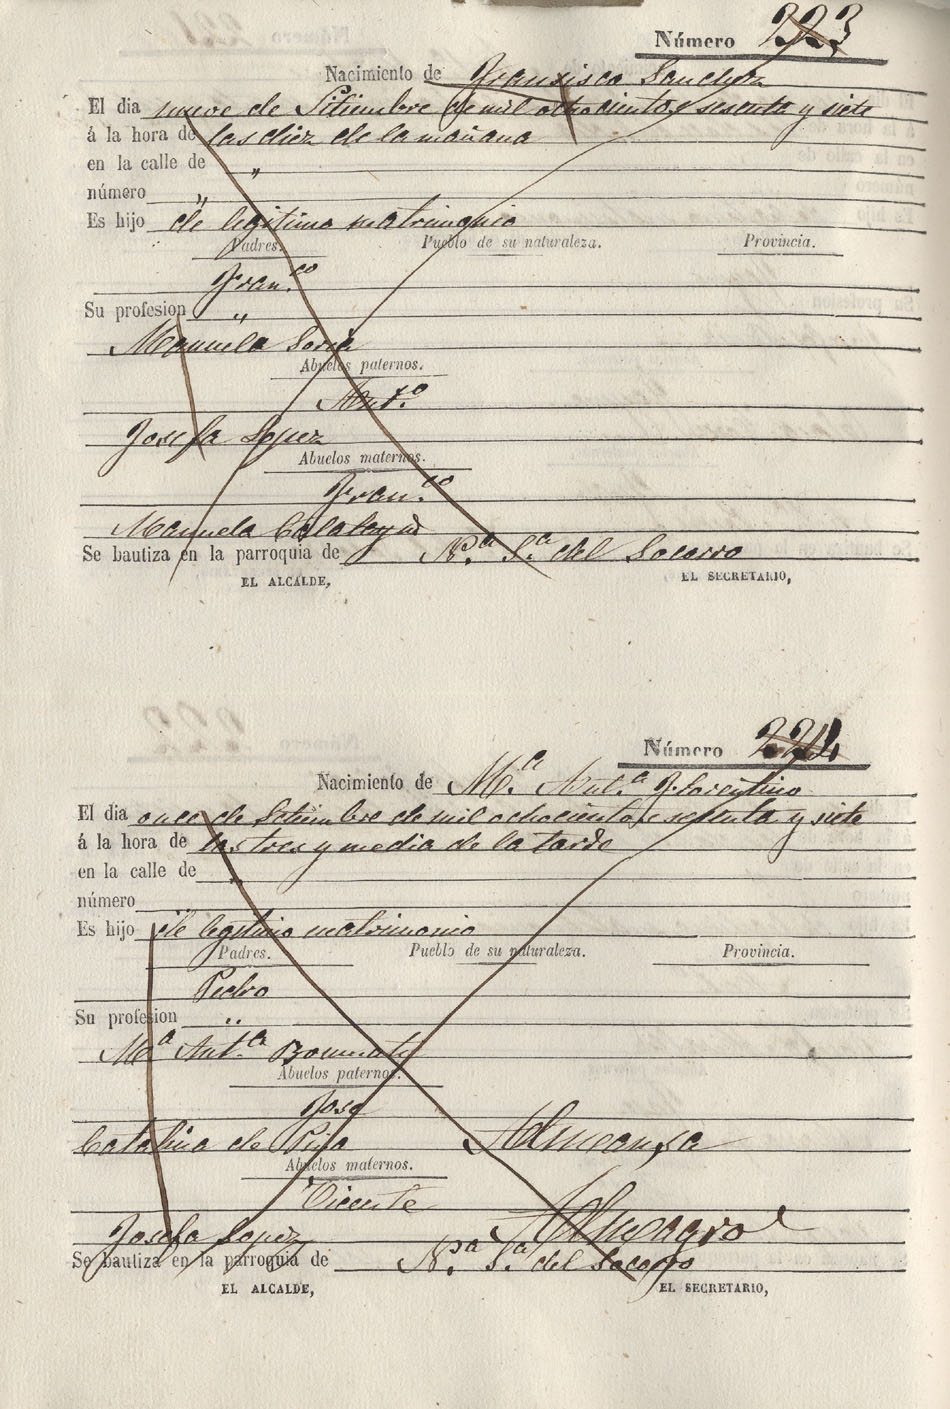 Número 223
Nacimiento de Fransisca Sanchez
El dia nueve de Setiembre de mil ochocientos sesenta y siete
á la hora de las diez de la mañana
en la calle de "
número "
Es hijo de legitimo matrimonio
Padres. Pueblo de su naturaleza. Provincia.
Fran.co
Su profesion "
Manuela Soria
Abuelos paternos.
Ant.o
Josefa Lopez
Abuelos maternos.
Fran.co
Manuela Calatayud
Se bautiza en la parroquia de N.a S.a del Socorro
EL ALCALDE, EL SECRETARIO,
Número 224
Nacimiento de M.a Ant.a Florentino
El dia once de Setiembre de mil ochocientos sesenta y siete
á la hora de las tres y media de la tarde
en la calle de "
número
Es hijo de legitimo matrimonio
Padres. Pueblo de su naturaleza. Provincia.
Pedro
Su profesion "
M.a Ant.a
Abuelos paternos.
José
Catalina de Almansa
Abuelos maternos.
Vicente Almagro
Josefa Lopez
Se bautiza en la parroquia de N.ra S.a del Socorro
EL ALCALDE, EL SECRETARIO,